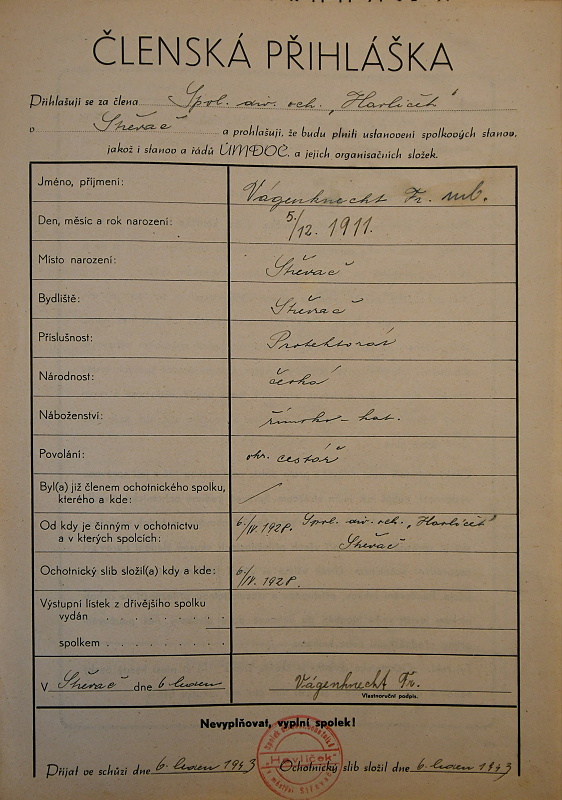 ČLENSKÁ PŘIHLÁŠKA
Přihlašuji se za člena Spol. div. och. „Havlíček"
v Střevač a prohlašuji, že budu plniti ustanovení spolkových stanov,
jakož i stanov a řádů ÚMDOČ. a jejich organisačních složek.
Jméno, příjmení: Vágenknecht Fr. ml.
Den, měsíc a rok narození: 5/12. 1911.
Místo narození: Střevač
Bydliště: Střevač
Příslušnost: Protektorát
Národnost: česká
Náboženství: římsko-kat.
Povolání: okr. cestář
Byl(a) již členem ochotnického spolku,
kterého a kde: /
Od kdy je činným v ochotnictvu 6/IV. 1928. Spol. div. och. „Havlíček"
a v kterých spolcích: Střevač
Ochotnický slib složil(a) kdy a kde: 6/IV. 1928.
Výstupní lístek z dřívějšího spolku
vydán . . . . . . . . . . . .
spolkem . . . . . . . . . . .
V Střevač dne 6. leden Vágenknecht Fr.
Vlastnoruční podpis.
Nevyplňovat, vyplní spolek!
Havlíček
Přijat ve schůzi dne 6. leden 1943 Ochotnický slib složil dne 6. leden 1943